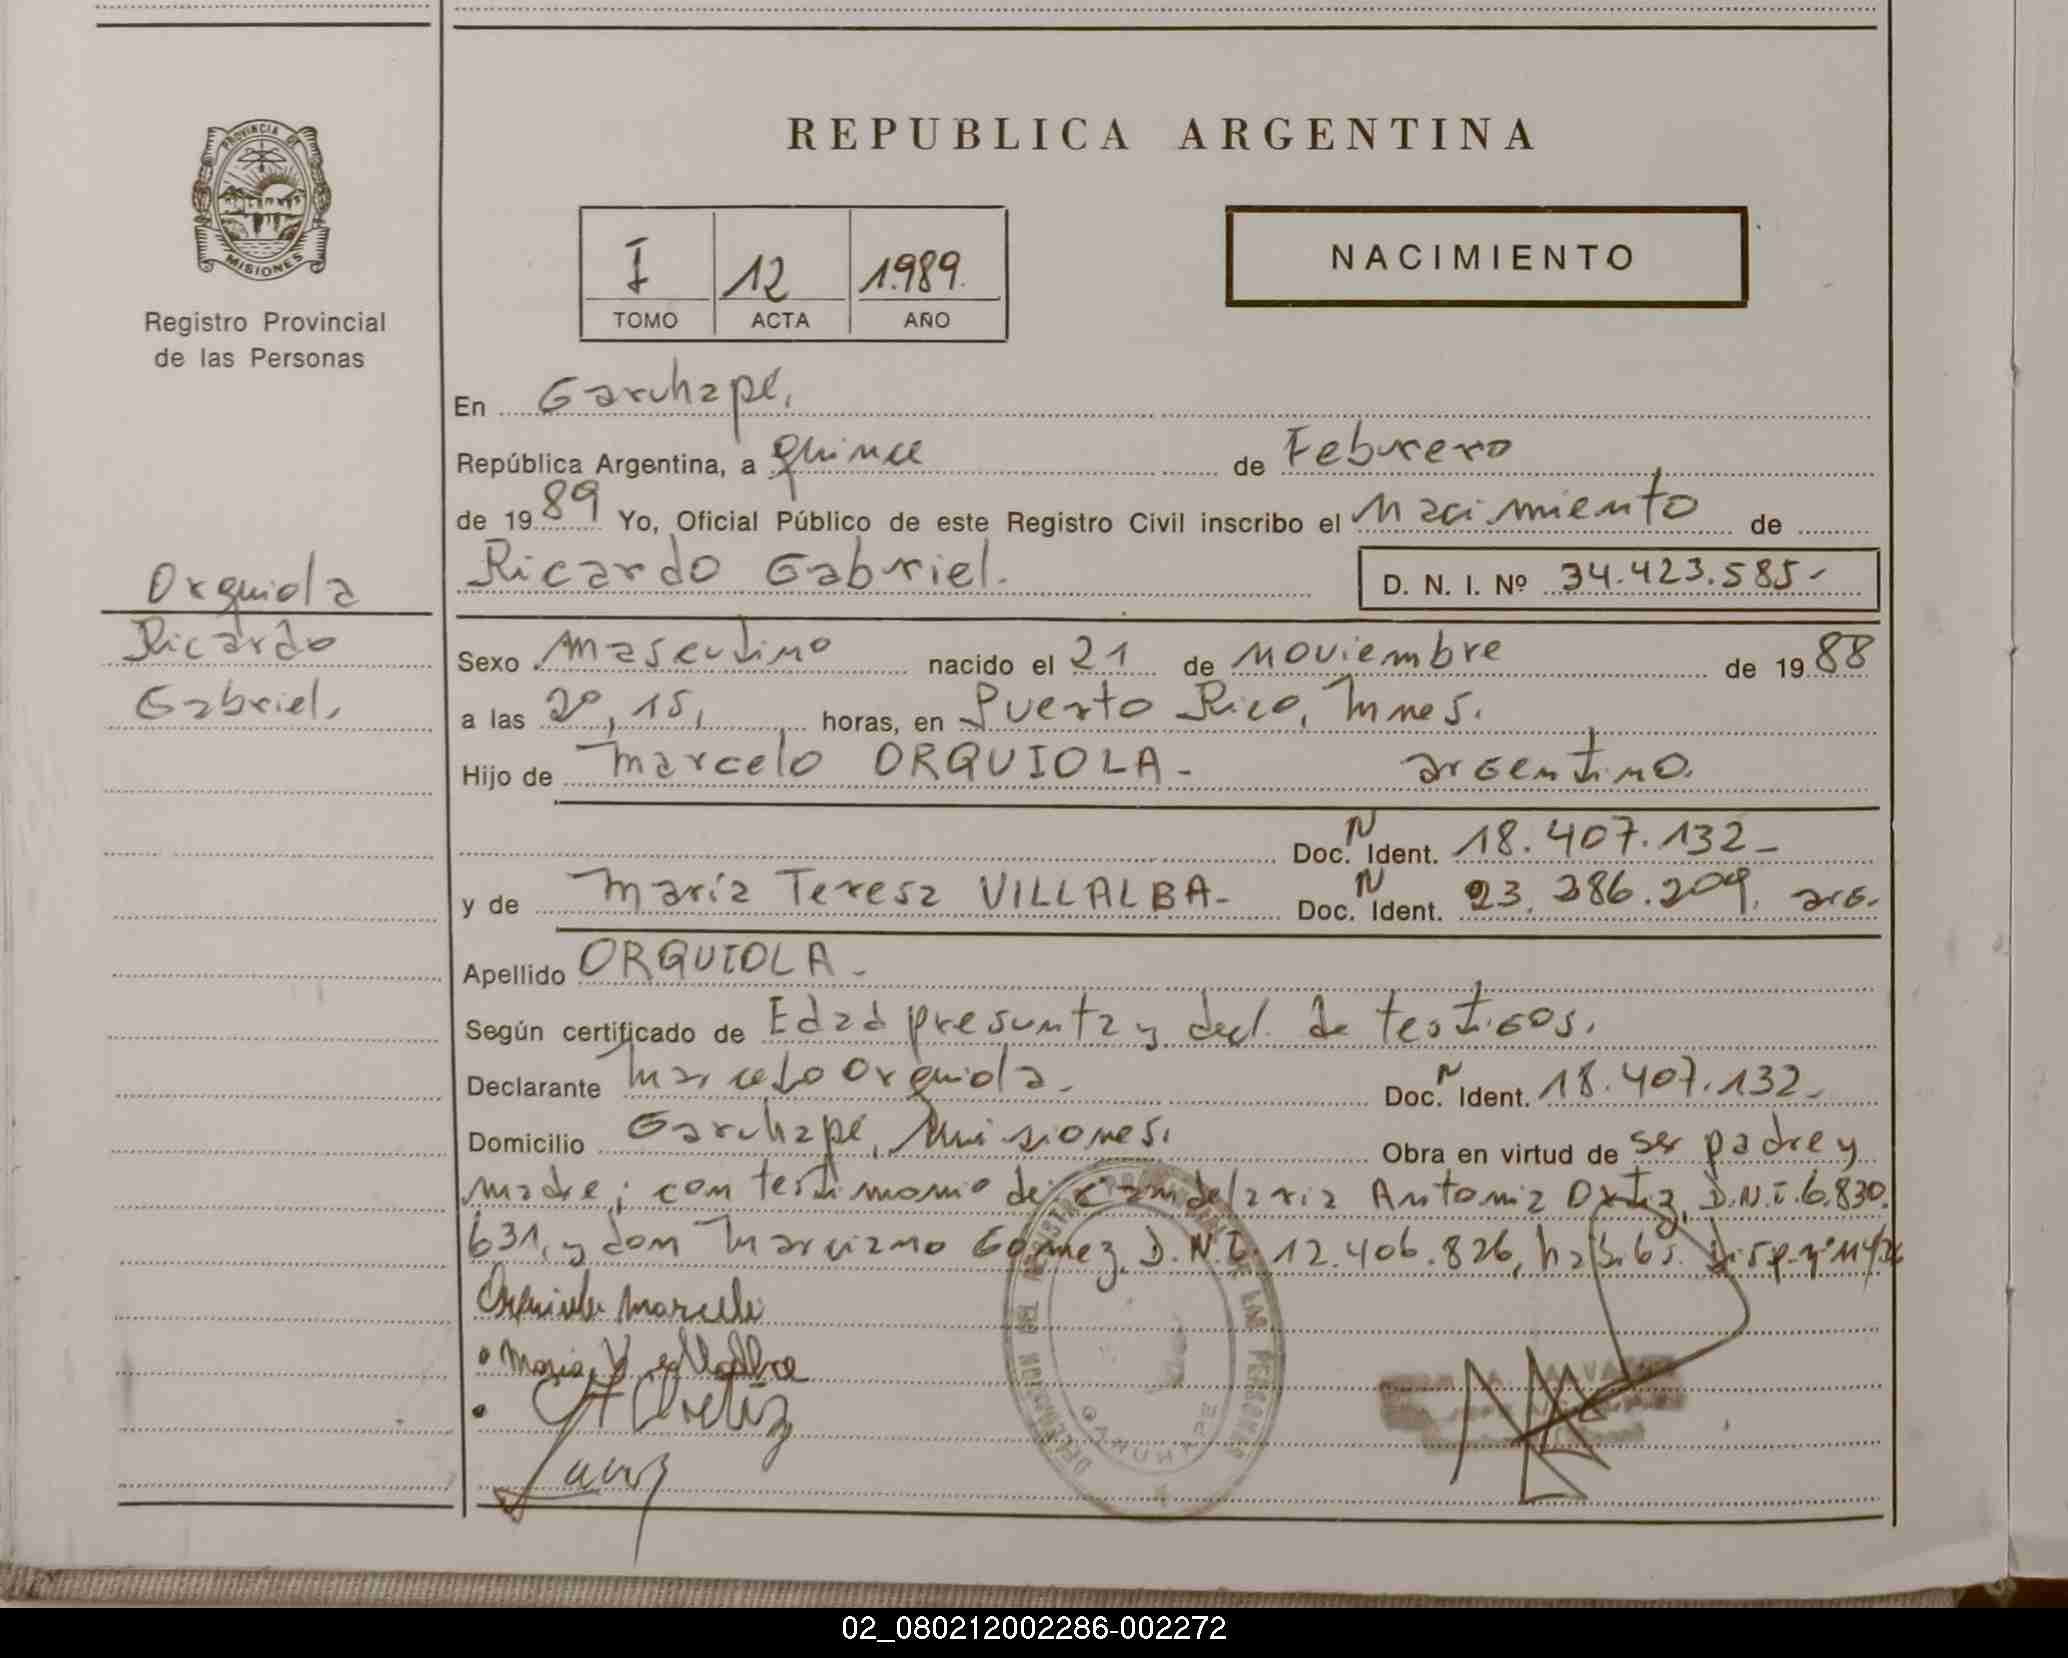 REPUBLICA ARGENTINA
PROVINCIA DE
MISIONES
Registro Provincial
de las Personas
I 12 1.989.
TOMO ACTA AÑO
NACIMIENTO
En Garuhapé,
República Argentina, a quince de Febrero
de 1989 Yo, Oficial Público de este Registro Civil inscribo el Nacimiento de
Ricardo Gabriel. D. N. I. Nº 34.423.585-
Orquiola
Ricardo
Gabriel,
Sexo Masculino nacido el 21 de Noviembre de 1988
a las 20,15, horas, en Puerto Rico, Mnes.
Hijo de Marcelo ORQUIOLA- argentino.
Doc. N Ident. 18.407.132-
y de María Teresa VILLALBA- Doc. N Ident. 23.286.209. arg.
Apellido ORQUIOLA-
Según certificado de Edad presunta y decl. de testigos.
Declarante Marcelo Orquiola- Doc. N Ident. 18.407.132-
Domicilio Garuhapé, Misiones. Obra en virtud de ser padre y
madre; con testimonio de: Candelaria Antonia Ortiz, D.N.I. 6.830.
631, y don Marciano Gomez, D.N.I. 12.406.826, hábiles. Disp. nº
Orquiola Marcelo
Maria Villalba
A Ortiz
DELEGACION DEL REGISTRO PROVINCIAL DE LAS PERSONAS
GARUHAPE
02_080212002286-002272